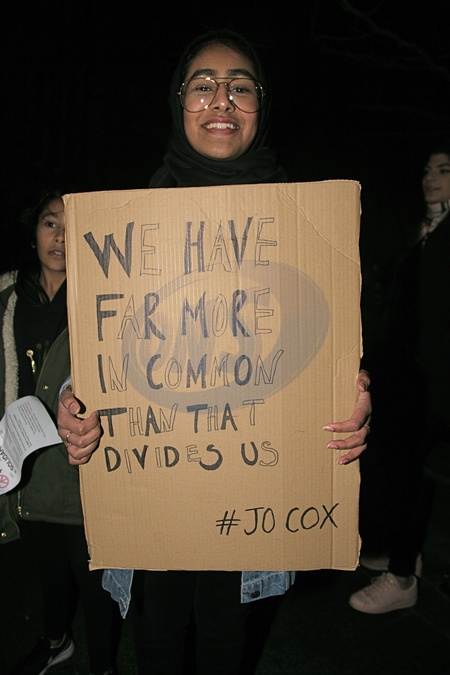 WE HAVE
FAR MORE
IN COMMON
THAN THAT
DIVIDES US
#JO COX